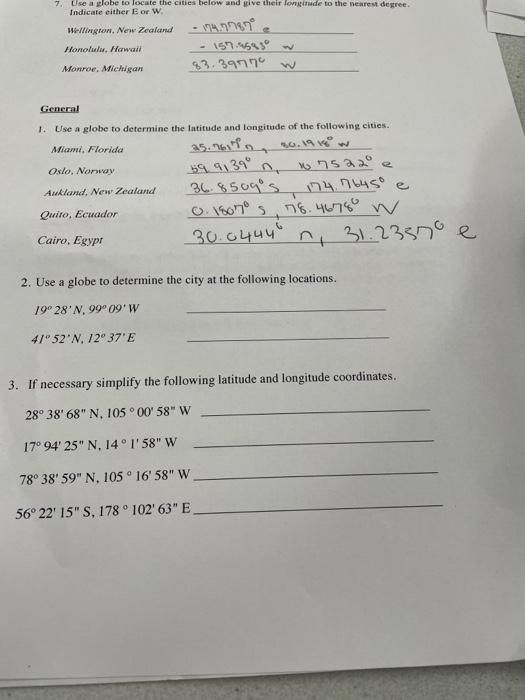 7. Use a globe to locate the cities below and give their longitude to the nearest degree.
Indicate either E or W.
Wellington, New Zealand - 174.7787° e
Honolulu, Hawaii - 157.8583° w
Monroe, Michigan 83.3977° w
General
1. Use a globe to determine the latitude and longitude of the following cities.
Miami, Florida 25.7617° n, 80.1918° w
Oslo, Norway 59.9139° n, 10.7522° e
Aukland, New Zealand 36.8509° s, 174.7645° e
Quito, Ecuador 0.1807° s, 78.4678° W
Cairo, Egypt 30.0444° n, 31.2357° e
2. Use a globe to determine the city at the following locations.
19° 28' N, 99° 09' W
41° 52' N, 12° 37' E
3. If necessary simplify the following latitude and longitude coordinates.
28° 38' 68" N, 105 ° 00' 58" W
17° 94' 25" N, 14 ° 1' 58" W
78° 38' 59" N, 105 ° 16' 58" W
56° 22' 15" S, 178 ° 102' 63" E